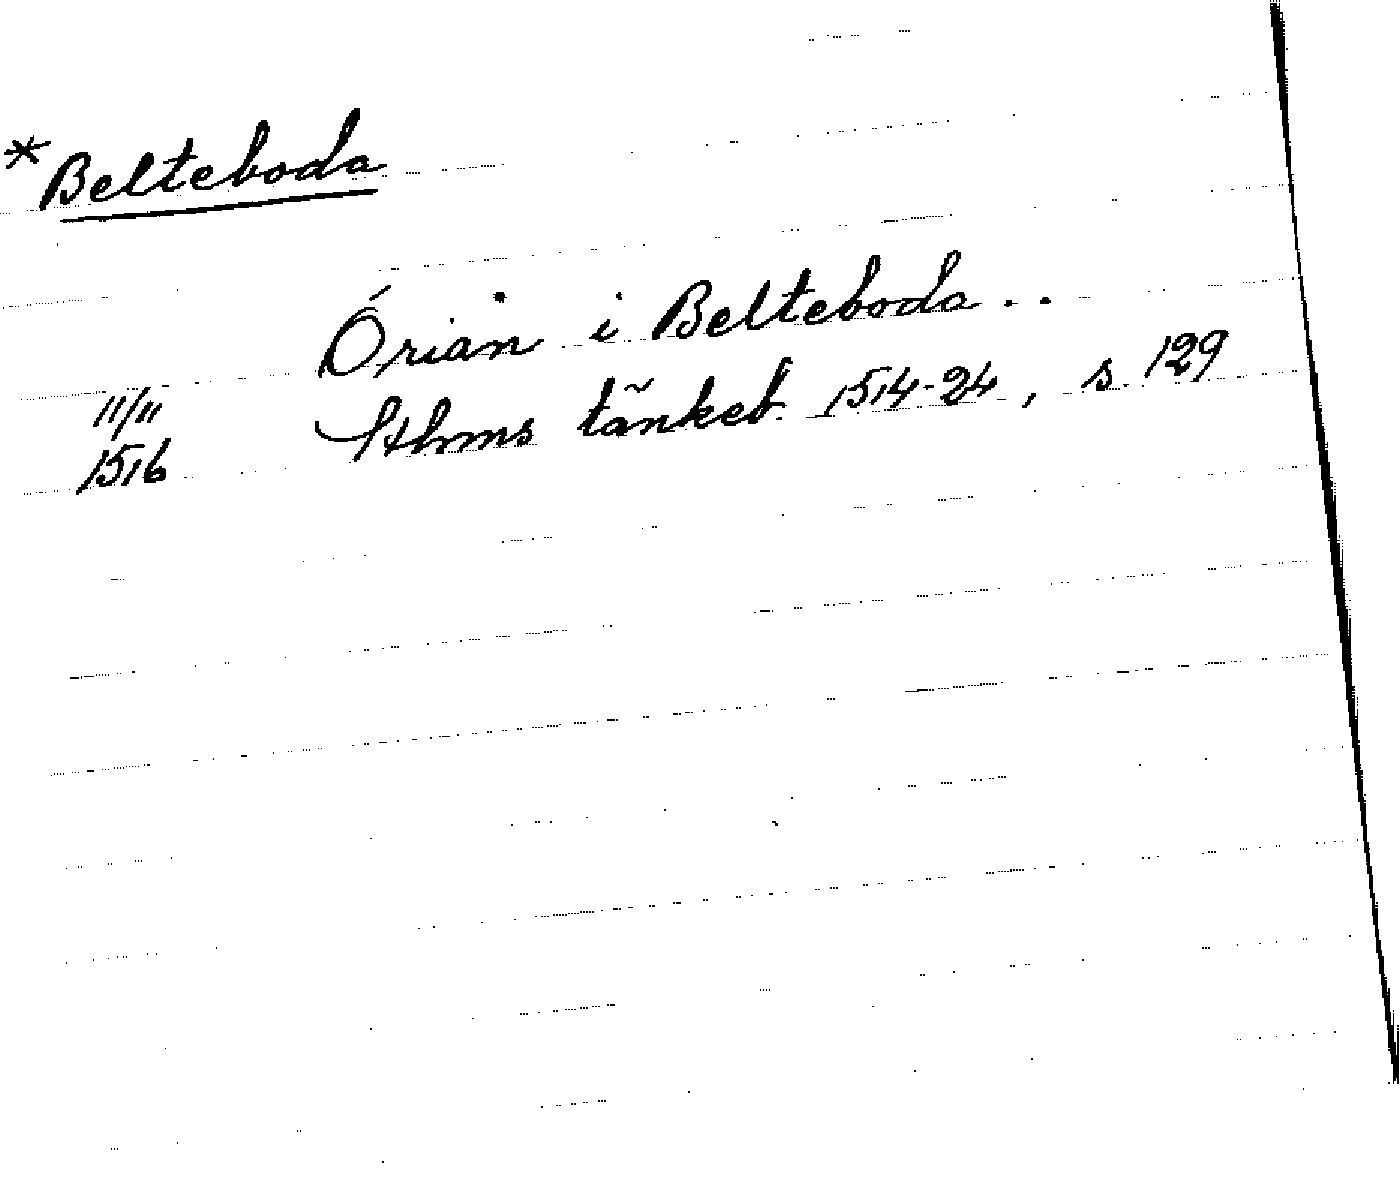 *Belteboda
Órian i Belteboda . .
11/11 Sthms tänkeb. 1514-24, s 129
1516